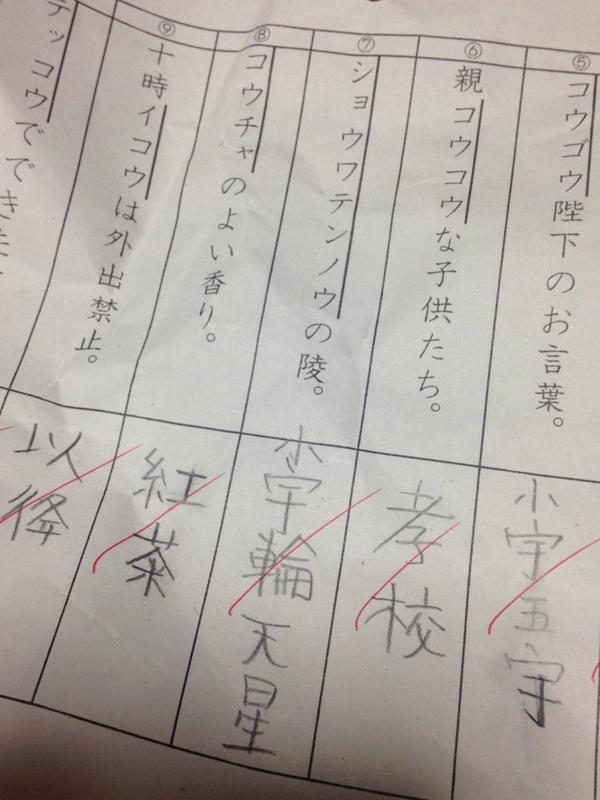 ⑤
コウゴウ陛下のお言葉。
小宇五宇
⑥
親コウコウな子供たち。
孝校
⑦
ショウワテンノウの陵。
小宇輪天星
⑧
コウチャのよい香り。
紅茶
⑨
十時イコウは外出禁止。
以降
テッコウでできた